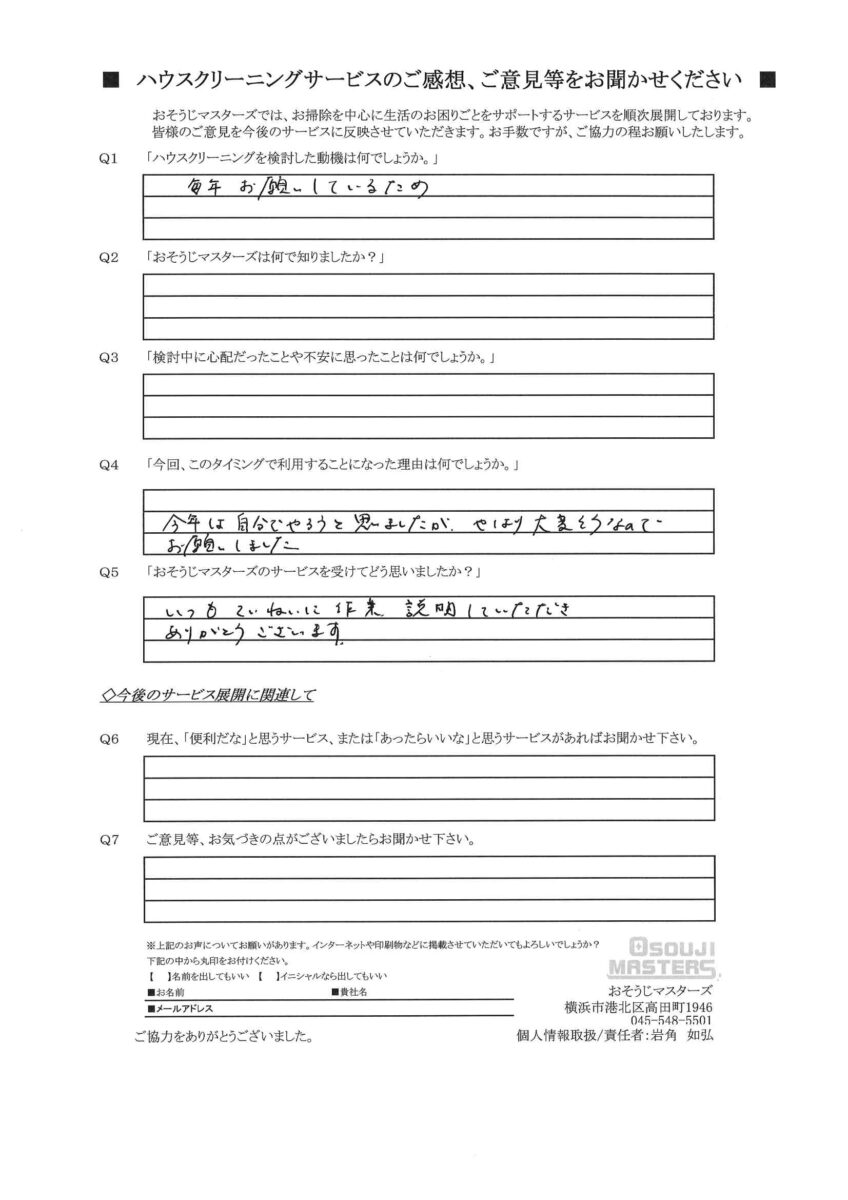 ■ ハウスクリーニングサービスのご感想、ご意見等をお聞かせください ■
おそうじマスターズでは、お掃除を中心に生活のお困りごとをサポートするサービスを順次展開しております。
皆様のご意見を今後のサービスに反映させていただきます。お手数ですが、ご協力の程お願いしたします。
Q1 「ハウスクリーニングを検討した動機は何でしょうか。」
毎年 お願いしているため
Q2 「おそうじマスターズは何で知りましたか？」
Q3 「検討中に心配だったことや不安に思ったことは何でしょうか。」
Q4 「今回、このタイミングで利用することになった理由は何でしょうか。」
今年は自分でやろうと思いましたが、やはり大変そうなので
お願いしました
Q5 「おそうじマスターズのサービスを受けてどう思いましたか？」
いつもていねいに作業 説明していただき
ありがとうございます。
◇今後のサービス展開に関連して
Q6 現在、「便利だな」と思うサービス、または「あったらいいな」と思うサービスがあればお聞かせ下さい。
Q7 ご意見等、お気づきの点がございましたらお聞かせ下さい。
※上記のお声についてお願いがあります。インターネットや印刷物などに掲載させていただいてもよろしいでしょうか？
下記の中から丸印をお付けください。
【 】名前を出してもいい 【 】イニシャルなら出してもいい
■お名前 ■貴社名
■メールアドレス
ご協力をありがとうございました。
OSOUJI
MASTERS
おそうじマスターズ
横浜市港北区高田町1946
045-548-5501
個人情報取扱/責任者：岩角 如弘